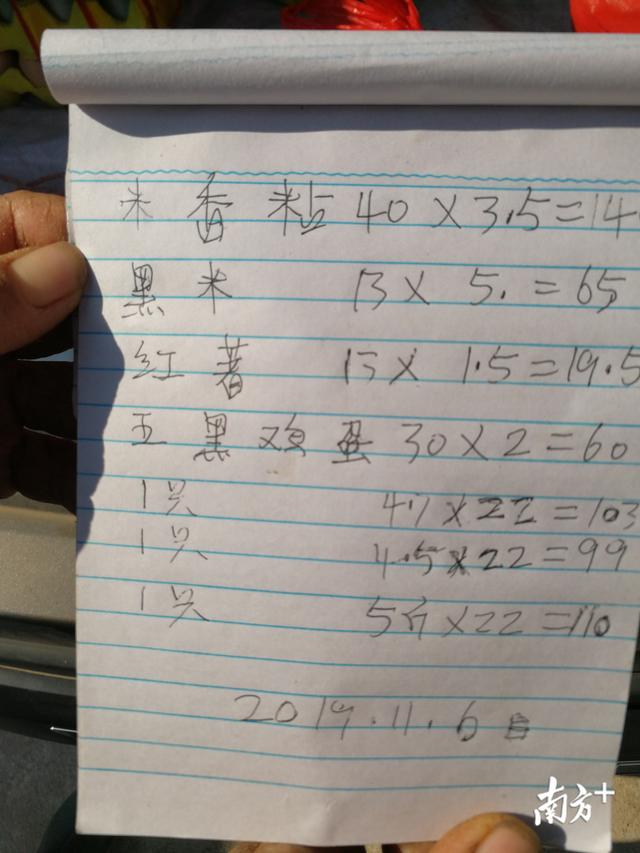 米香粘 40×3.5=14
黑米 13× 5.=65
红薯 13× 1.5=19.5
五黑鸡蛋 30×2=60
1只 4.7×22=103
1只 4.5×22=99
1只 5斤×22=110
2019.11.6日
南方+